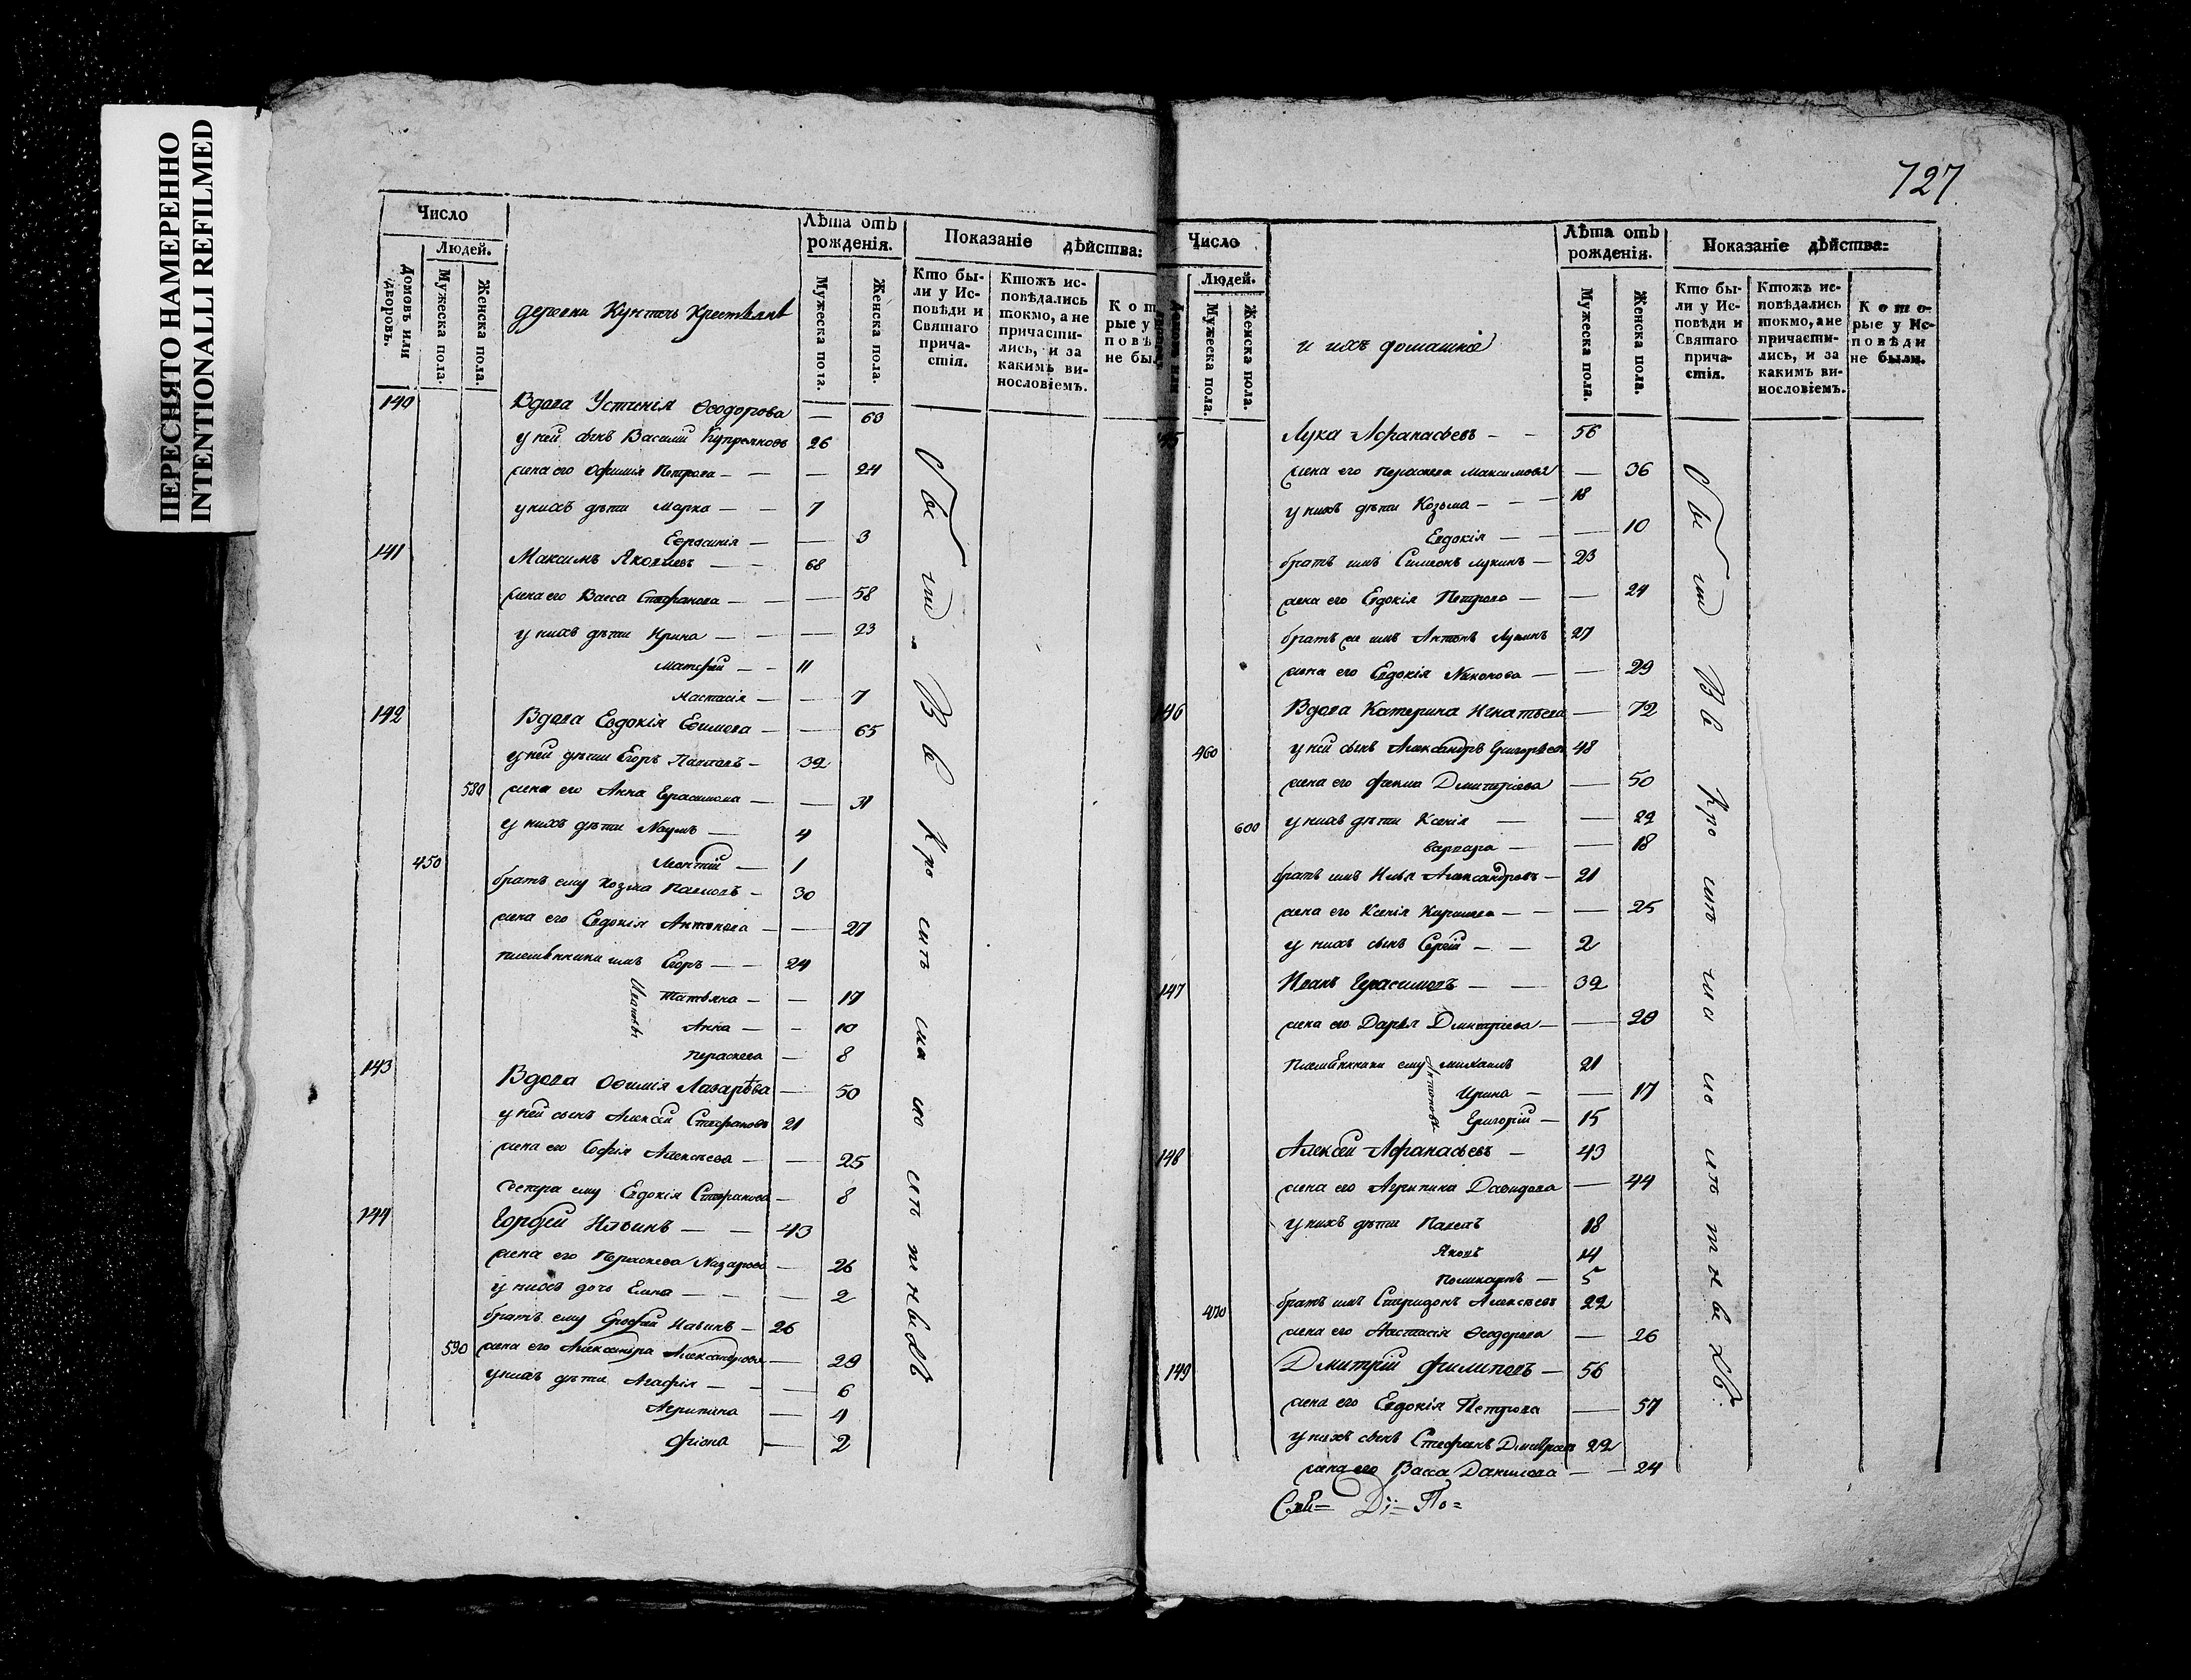 ПЕРЕСНЯТО НАМЕРЕННО
INTENTIONALLI REFILMED
727.
Число
Людей.
Домовъ или дворовъ.
Мужеска пола.
Женска пола.
деревни Крестьяне
Лѣта отъ рожденія.
Мужеска пола.
Женска пола.
Показаніе дѣйства:
Кто бы-
ли у Ис-
повѣди и
Святаго
прича-
стія.
Ктожъ ис-
повѣдались
токмо, а не
причасти-
лись, и за
какимъ ви-
нословіемъ.
140 Вдова Устинія Ѳеодорова — 63
у ней сынъ Василій Купреяновъ 26
жена его Офимія Петрова — — 24
у нихъ дѣти Марко — — 7
Ефросинія — — 3
141 Максимъ Яковлевъ — — 68
жена его Васса Стефанова — — 58
у нихъ дѣти Ирина — — 23
Матфей — — 11
Настасія — — 7
142 Вдова Евдокія Ефимова — — 65
у ней дѣти Егоръ Павловъ — 32
580 жена его Анна Герасимова — — 31
у нихъ дѣти Наумъ — 4
450 Леонтий — 1
братъ ему Козма Павловъ — 30
жена его Евдокія Антонова — — 27
племянники имъ Егоръ — — 24
Ивановы
Татьяна — — 17
Анна — — 10
Пераскева — 8
143 Вдова Офимія Лазарѣва — 50
у ней сынъ Алексѣй Стефановъ 21
жена его Софія Алексѣева — — 25
сестра ему Евдокія Стефанова — 8
144 Гордѣй Ильинъ — — 43
жена его Пераскева Назарова — 26
у нихъ дочь Елена — — — 2
братъ ему Ерофѣй Ильинъ — 26
590 жена его Александра Александрова — 29
у нихъ дѣти Агафія — — — 6
Агрипина — 4
Фіона — 2
Всѣ
Число
Людей.
Мужеска пола.
Женска пола.
и ихъ домашніе
Лѣта отъ рожденія.
Мужеска пола.
Женска пола.
Показаніе дѣйства:
Кто бы-
ли у Ис-
повѣди и
Святаго
прича-
стія.
Ктожъ ис-
повѣдались
токмо, а не
причасти-
лись, и за
какимъ ви-
нословіемъ.
Кото-
рые у Ис-
повѣди
не были.
Лука Афанасьевъ — — 56
жена его Пераскева Максимова — 36
у нихъ дѣти Козьма — — — 18
Евдокія — — — 10
братъ имъ Симеонъ Лукинъ — 23
жена его Евдокія Петрова — — 24
братъ же имъ Антонъ Лукинъ 27
жена его Евдокія Никонова — — 29
146 Вдова Катерина Игнатьева — 72
460 у ней сынъ Александръ Григорьевъ 48
жена его Фекла Димитріева — 50
600 у нихъ дѣти Ксенія — — 22
Варвара — — 18
братъ имъ Илья Александровъ — 21
жена его Ксенія — — — 25
у нихъ сынъ Сергій — — 2
147 Иванъ Герасимовъ — — 32
жена его Дарья Димитріева — — 29
Племянники ему Михаилъ 21
Антоновы
Ирина — — 17
Григорій — 15
148 Алексѣй Афанасьевъ — 43
жена его Агрипина Давидова — 44
у нихъ дѣти Павелъ 18
Яковъ 14
Поликарпъ — 5
470 братъ имъ Спиридонъ Алексѣевъ 22
жена его Настасія Ѳеодорова — 26
149 Дмитрій Филиповъ — 56
жена его Евдокія Петрова — 57
у нихъ сынъ Стефанъ 22
жена его Васса Данилова — — 24